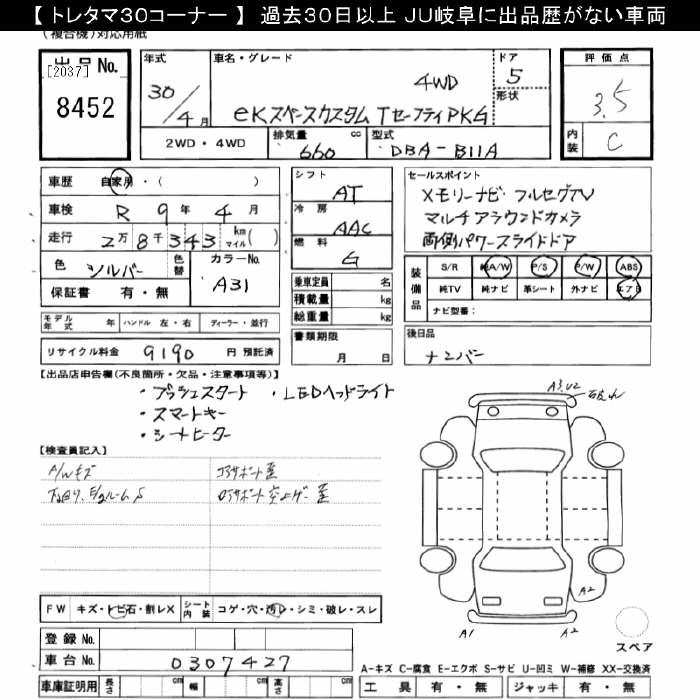 【 トレタマ30コーナー 】 過去30日以上 JU岐阜に出品歴がない車両
(複合機)対応用紙
出品No.
[2037]
8452
年式
30/4月
車名・グレード
4WD
eKスペースカスタム TセーフティPKG
ドア
5
形状
評価点
3.5
内装
C
2WD・4WD
排気量
660
cc
型式
DBA-B11A
車歴
自家用・( )
車検
R 9年 4月
走行
2万8千343 km マイル( )
色
シルバー
色替
カラーNo.
A31
保証書
有・無
シフト
AT
冷房
AAC
燃料
G
乗車定員
名
積載量
kg
総重量
kg
セールスポイント
メモリーナビ・フルセグTV
マルチアラウンドカメラ
両側パワースライドドア
装備品
S/R 純A/W P/S P/W ABS
純TV 純ナビ 革シート 外ナビ エアB
ナビ型番:
モデル年式 年 ハンドル 左・右 ディーラー・並行
リサイクル料金
9190 円 預託済
書類期限
月 日
後日品
ナンバー
【出品店申告欄(不良箇所・欠品・注意事項等)】
・プッシュスタート ・LEDヘッドライト
・スマートキー
・シートヒーター
【検査員記入】
A/Wキズ
コアサポート歪
A3.U2
A2
A1
A2
FW キズ・トビ石・割レX
シート内装 コゲ・穴・汚レ・シミ・破レ・スレ
スペア
登録No.
車台No.
0307427
A-キズ C-腐食 E-エクボ S-サビ U-凹ミ W-補修 XX-交換済
車庫証明用 長さ cm 幅 cm 高さ cm
工具 有・無 ジャッキ 有・無